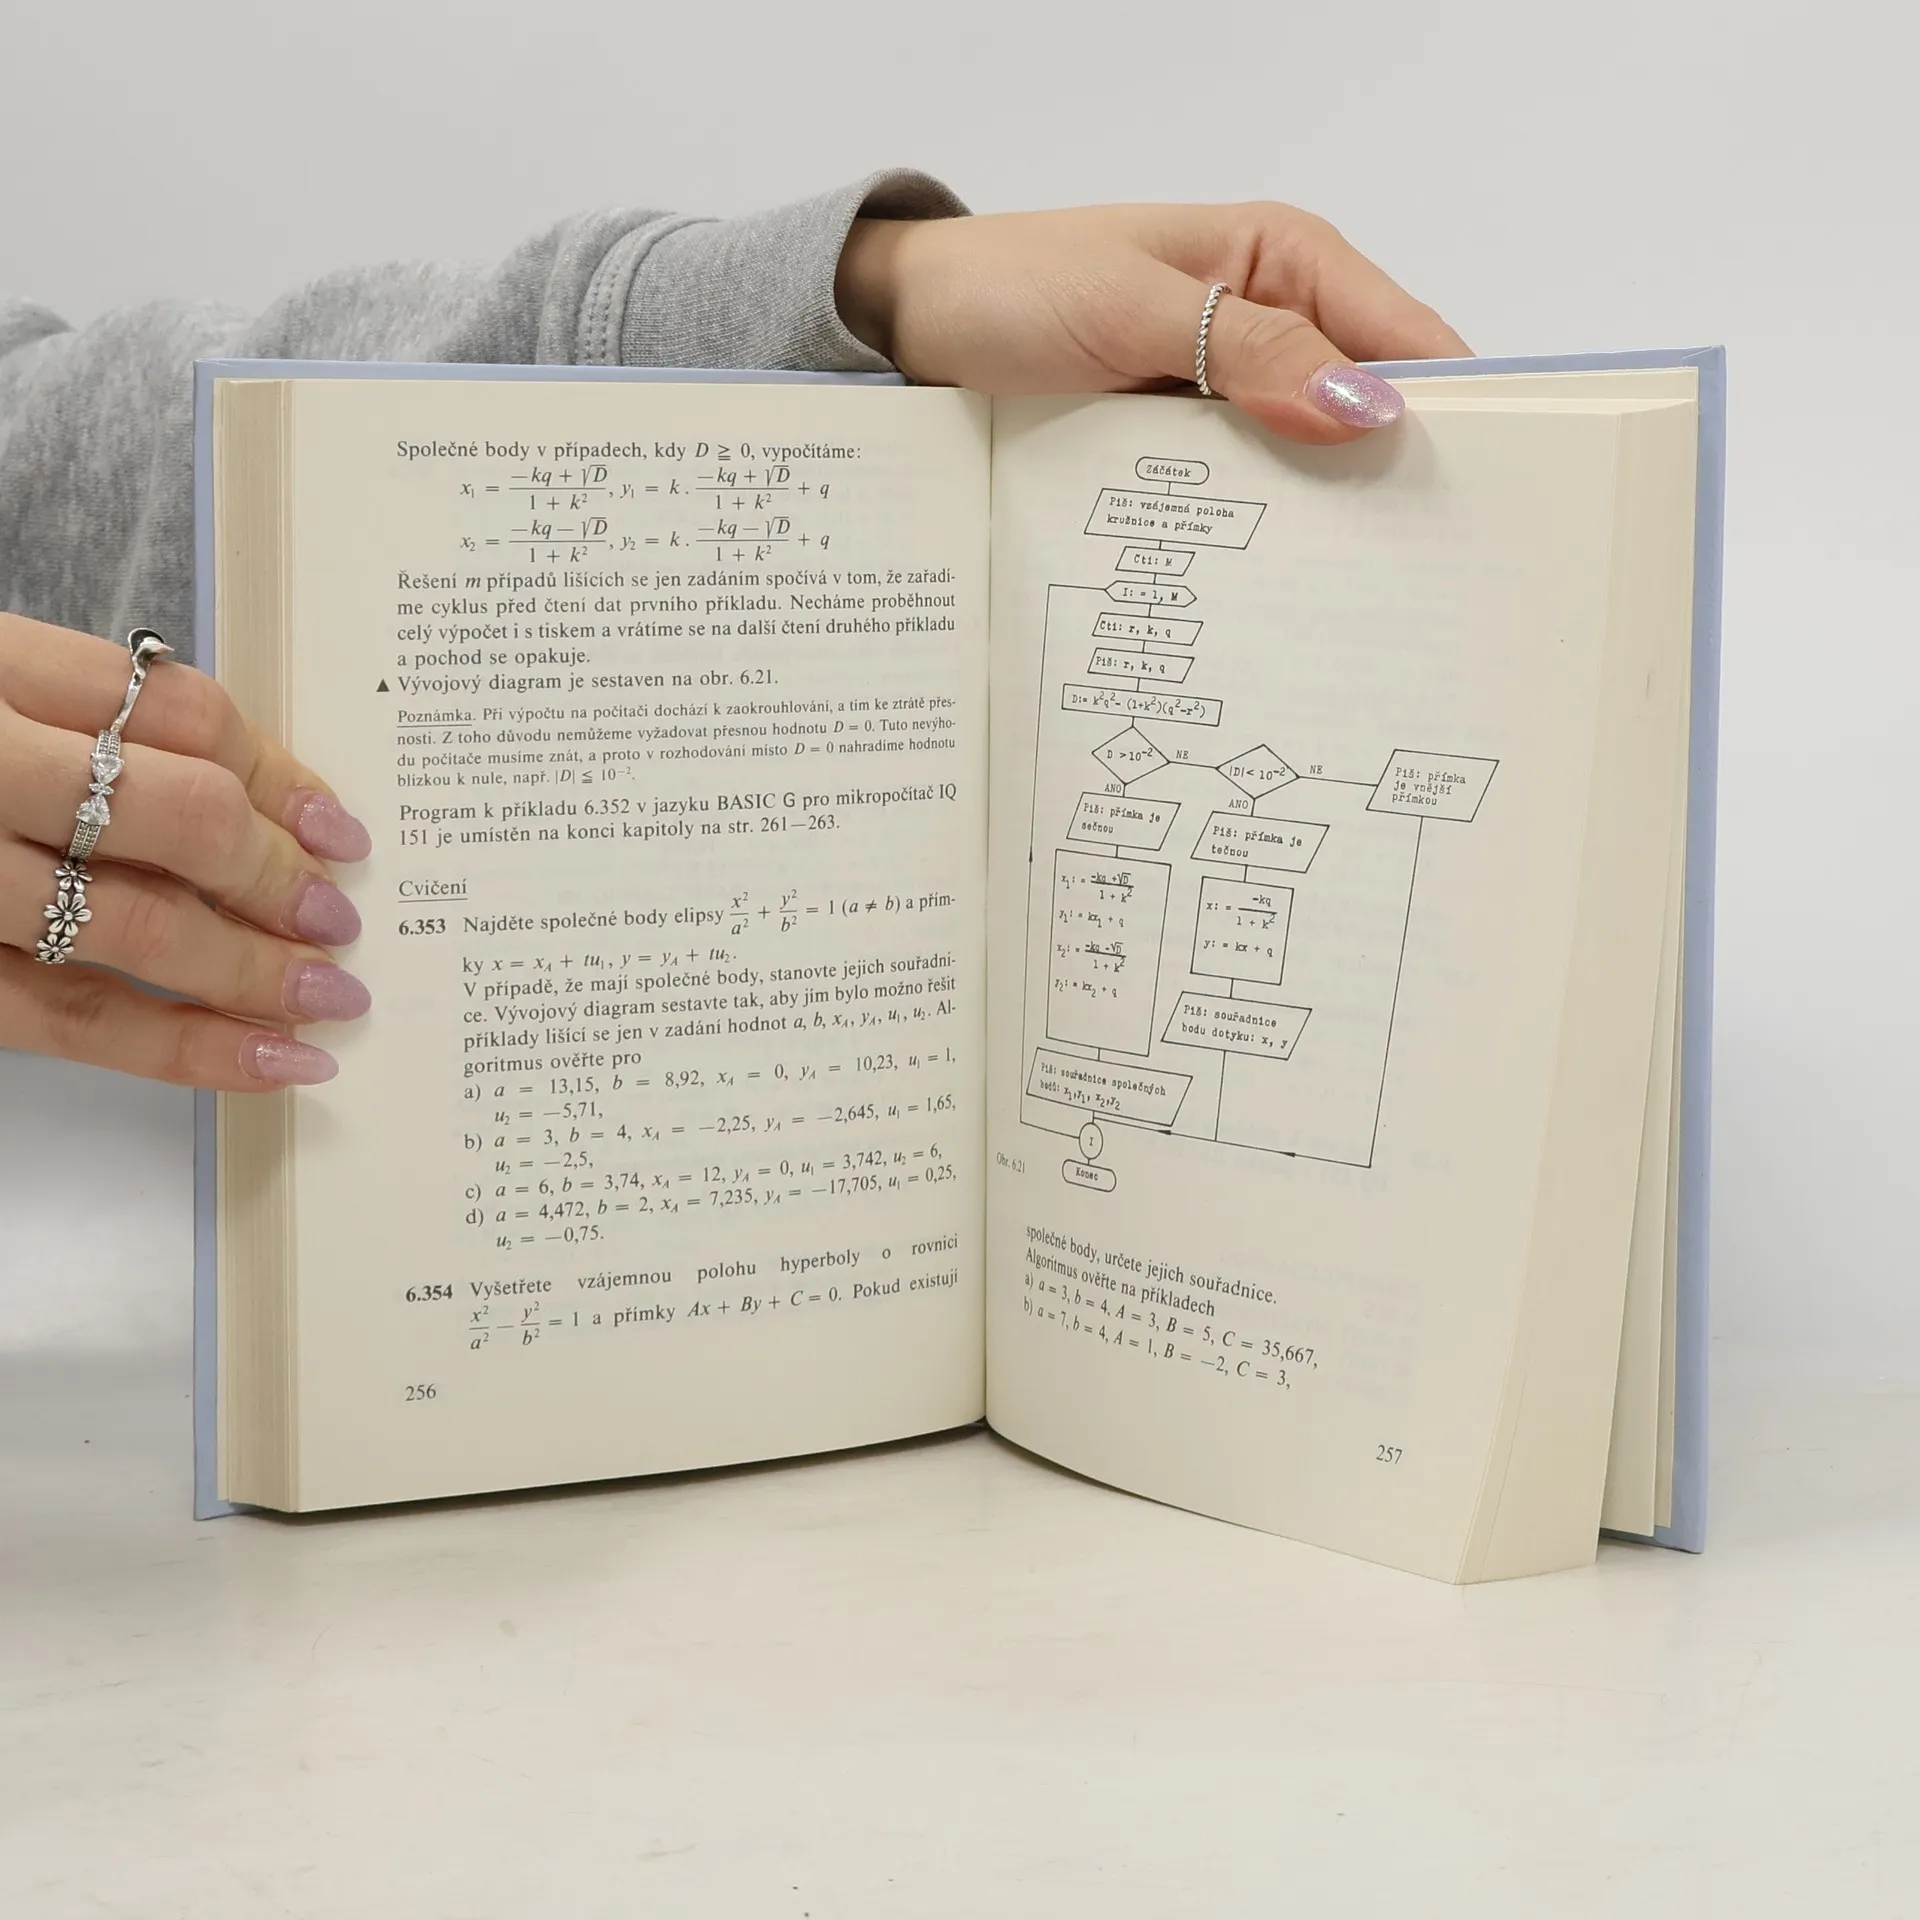 Společné body v případech, kdy D ≧ 0, vypočítáme:
x₁ = (−kq + √D)/(1 + k²), y₁ = k . (−kq + √D)/(1 + k²) + q
x₂ = (−kq − √D)/(1 + k²), y₂ = k . (−kq − √D)/(1 + k²) + q
Řešení m případů lišících se jen zadáním spočívá v tom, že zařadí-
me cyklus před čtení dat prvního příkladu. Necháme proběhnout
celý výpočet i s tiskem a vrátíme se na další čtení druhého příkladu
a pochod se opakuje.
▲ Vývojový diagram je sestaven na obr. 6.21.
Poznámka. Při výpočtu na počítači dochází k zaokrouhlování, a tím ke ztrátě přes-
nosti. Z toho důvodu nemůžeme vyžadovat přesnou hodnotu D = 0. Tuto nevýho-
du počítače musíme znát, a proto v rozhodování místo D = 0 nahradíme hodnotu
blízkou k nule, např. |D| ≦ 10⁻².
Program k příkladu 6.352 v jazyku BASIC G pro mikropočítač IQ
151 je umístěn na konci kapitoly na str. 261—263.
Cvičení
6.353 Najděte společné body elipsy x²/a² + y²/b² = 1 (a ≠ b) a přím-
ky x = x_A + tu₁, y = y_A + tu₂.
V případě, že mají společné body, stanovte jejich souřadni-
ce. Vývojový diagram sestavte tak, aby jím bylo možno řešit
příklady lišící se jen v zadání hodnot a, b, x_A, y_A, u₁, u₂. Al-
goritmus ověřte pro
a) a = 13,15, b = 8,92, x_A = 0, y_A = 10,23, u₁ = 1,
u₂ = −5,71,
b) a = 3, b = 4, x_A = −2,25, y_A = −2,645, u₁ = 1,65,
u₂ = −2,5,
c) a = 6, b = 3,74, x_A = 12, y_A = 0, u₁ = 3,742, u₂ = 6,
d) a = 4,472, b = 2, x_A = 7,235, y_A = −17,705, u₁ = 0,25,
u₂ = −0,75.
6.354 Vyšetřete vzájemnou polohu hyperboly o rovnici
x²/a² − y²/b² = 1 a přímky Ax + By + C = 0. Pokud existují
256
Začátek
Piš: vzájemná poloha
kružnice a přímky
Čti: M
I: = 1, M
Čti: r, k, q
Piš: r, k, q
D:= k²q²- (1+k²)(q²-r²)
D >10⁻²
NE
|D|< 10⁻²
NE
Piš: přímka
je vnější
přímkou
ANO
ANO
Piš: přímka je
sečnou
Piš: přímka je
tečnou
x₁: = (-kq +√D)/(1 + k²)
y₁: = kx₁ + q
x₂: = (-kq -√D)/(1 + k²)
y₂: = kx₂ + q
x: = -kq/(1 + k²)
y: = kx + q
Piš: souřadnice
bodu dotyku: x, y
Piš: souřadnice společných
bodů: x₁,y₁, x₂,y₂
I
Konec
Obr. 6.21
společné body, určete jejich souřadnice.
Algoritmus ověřte na příkladech
a) a = 3, b = 4, A = 3, B = 5, C = 35,667,
b) a = 7, b = 4, A = 1, B = −2, C = 3,
257